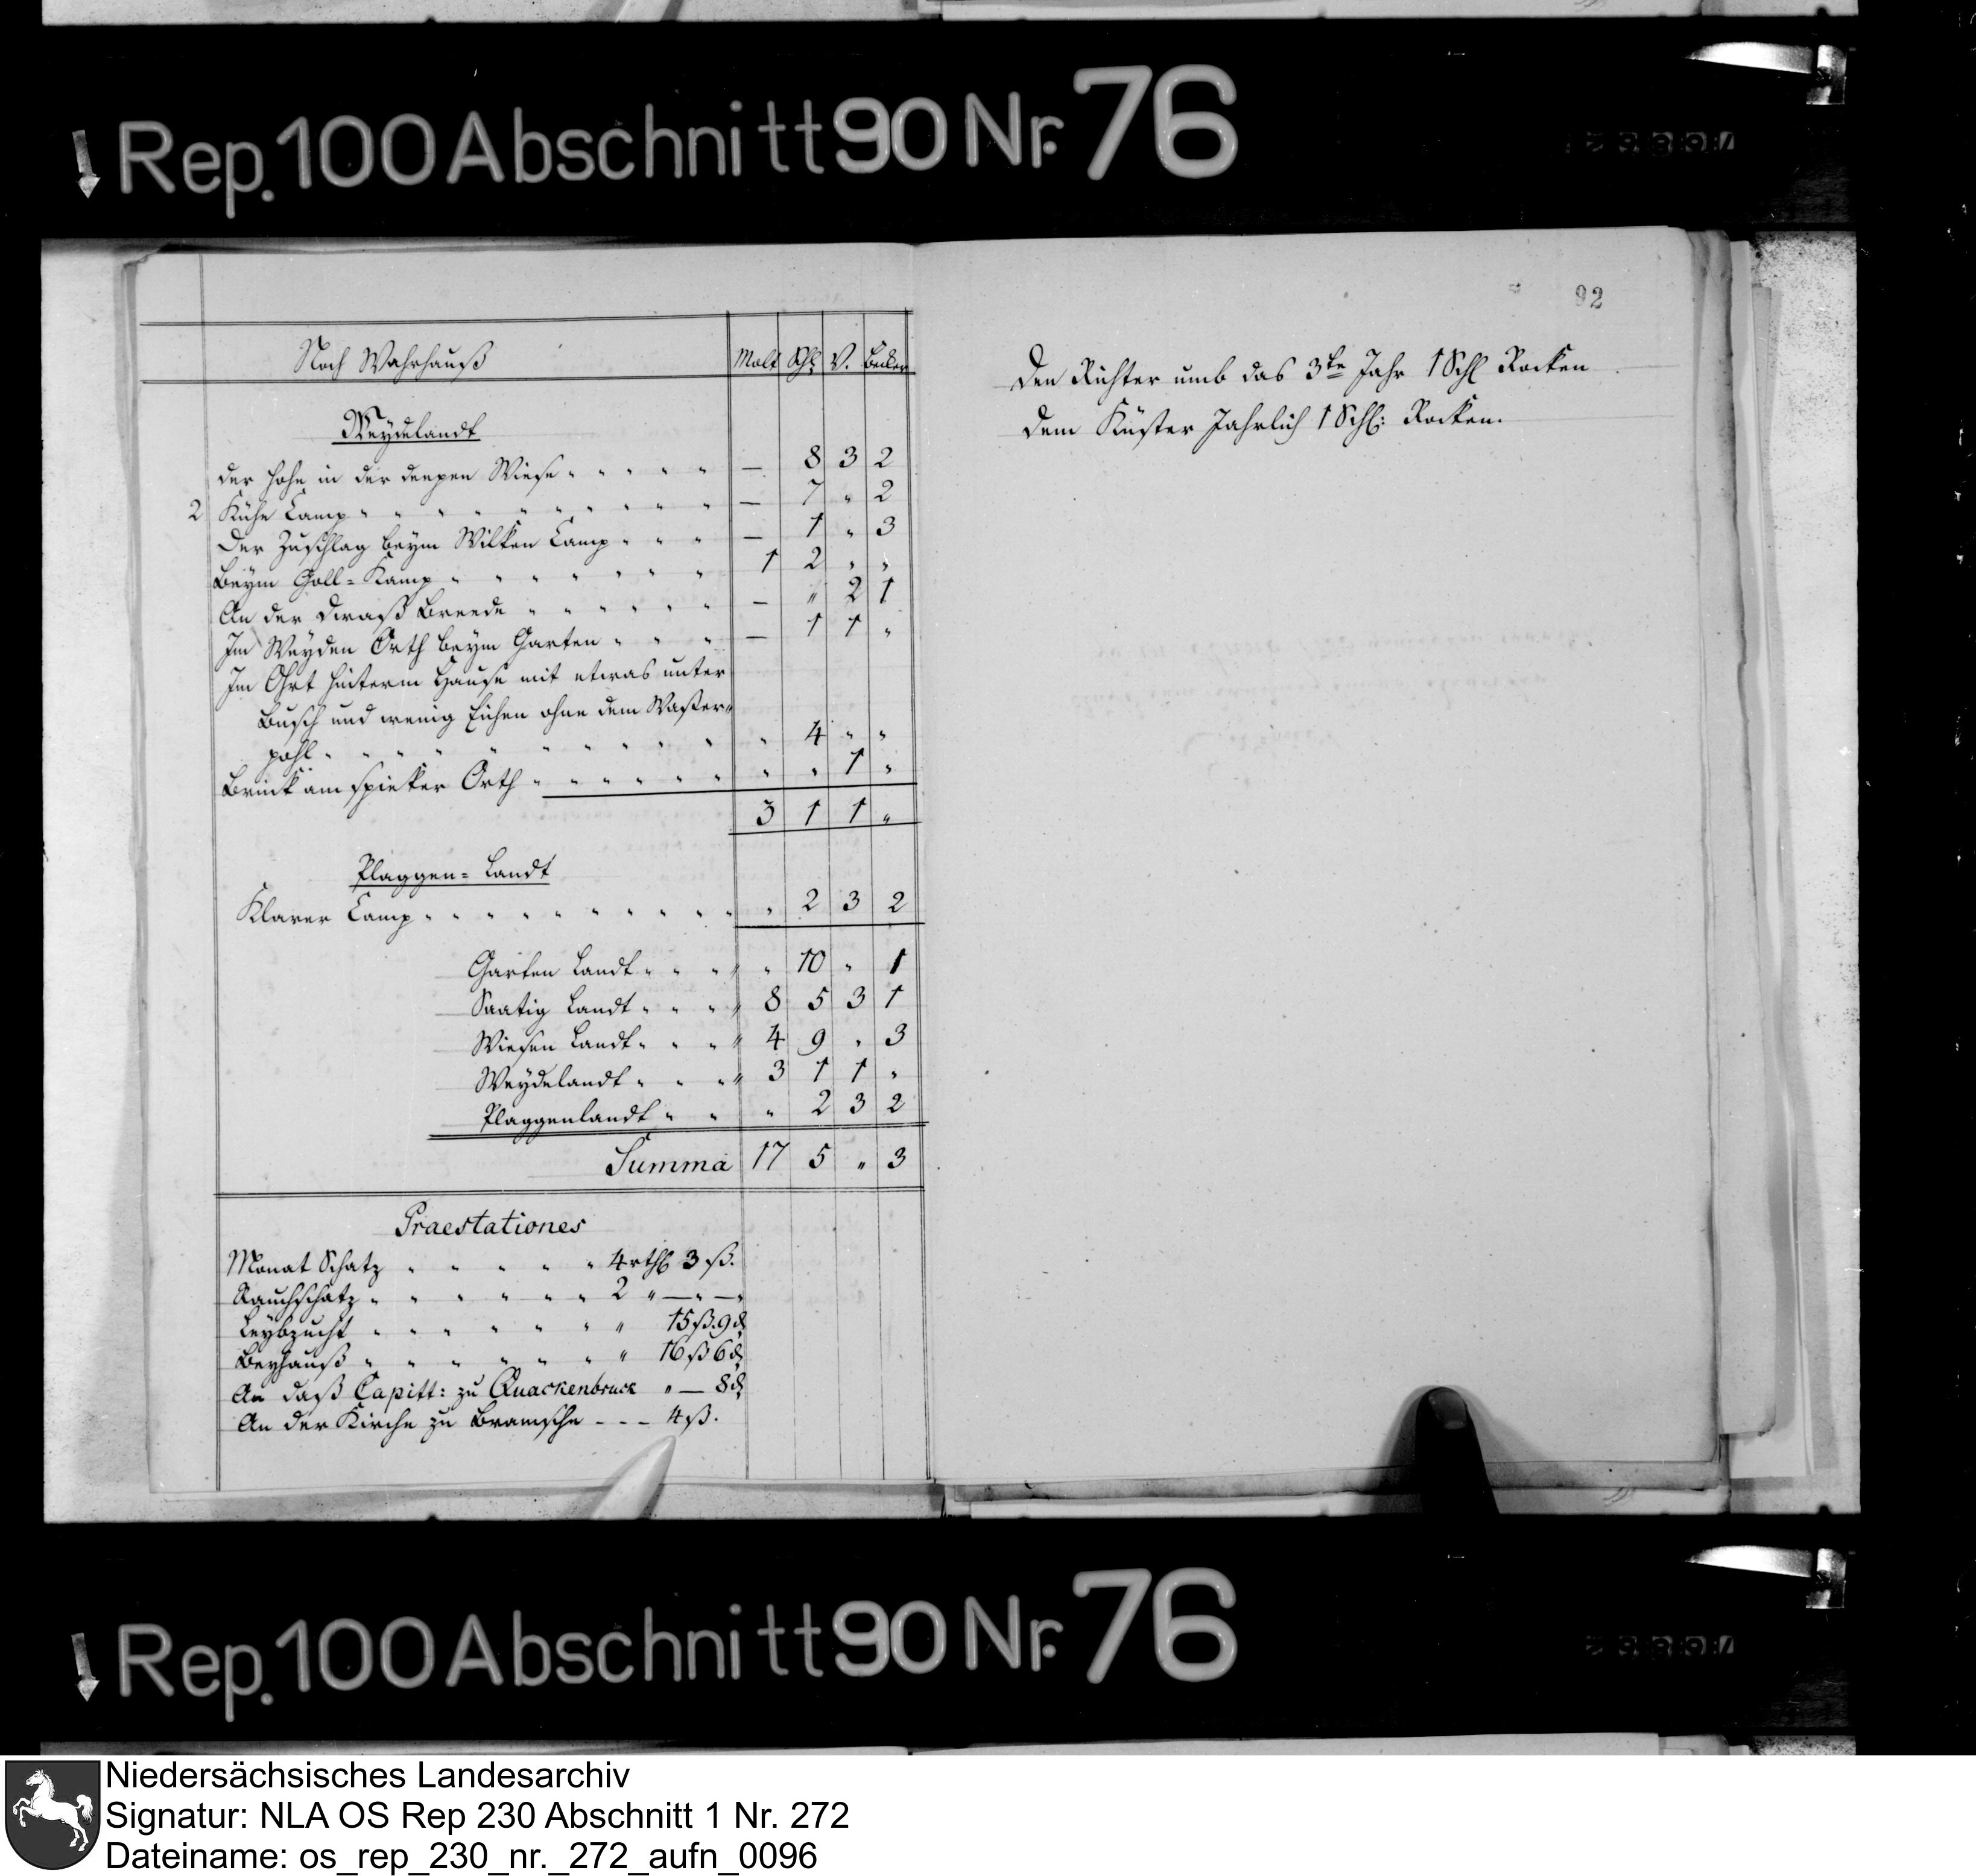 Rep. 100 Abschnitt 90 Nr. 76
92
Noch Wahrhauß Malt Schl V. Becker
Weydelandt
der Hohe in der deepen Wiese " " " " " — 8 3 2
2 Kühe Camp " " " " " " " " " — 7 " 2
Der Zuschlag beym Wilken Camp " " " — 1 " 3
Beym Goll-Kamp " " " " " " " 1 2 " "
An der Draß Breede " " " " " " — " 2 1
Im Weyden Orth beym Garten " " " — 1 1 "
Im Ort hinterm Hause mit etwas unter
Busch und wenig Eichen ohne dem Waßer-
pohl " " " " " " " " " " 4 " "
Brinck am spieker Orth " " " " " " " " 1 "
3 1 1 "
Plaggen-Landt
Klarer Camp " " " " " " " " " " 2 3 2
Garten Landt " " " " 10 " 1
Saatig Landt " " " 8 5 3 1
Wiesen Landt " " " 4 9 " 3
Weydelandt " " " 3 1 1 "
Plaggenlandt " " " 2 3 2
Summa 17 5 " 3
Praestationes
Monat Schatz " " " " " 4 rthl 3 ß.
Rauchschatz " " " " " " 2 " — " — "
Leybzucht " " " " " " " 15 ß. 9 d
Beyhauß " " " " " " " 16 ß 6 d
An daß Capitt: zu Quackenbruck " — 8 d
An der Kirche zu Bramsche - - - 4 ß.
Den Richter umb das 3te Jahr 1 Schl Rocken
dem Küster Jahrlich 1 Schl: Rocken.
Rep. 100 Abschnitt 90 Nr. 76
Niedersächsisches Landesarchiv
Signatur: NLA OS Rep 230 Abschnitt 1 Nr. 272
Dateiname: os_rep_230_nr._272_aufn_0096